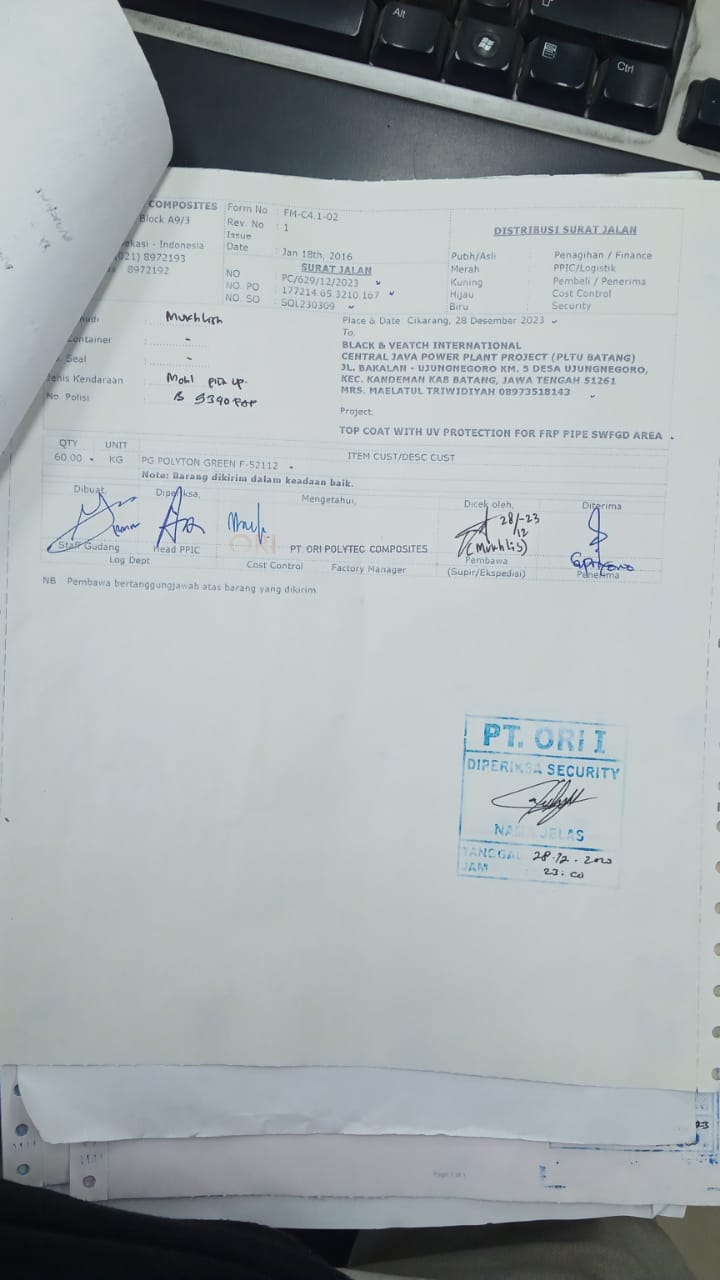 Alt
Ctrl
COMPOSITES
Block A9/3
ekasi - Indonesia
021) 8972193
8972192
Form No : FM-C4.1-02
Rev. No : 1
Issue
Date : Jan 18th, 2016
SURAT JALAN
NO PC/629/12/2023
NO. PO 177214.65.3210.167
NO. SO SOL230309
DISTRIBUSI SURAT JALAN
Putih/Asli : Penagihan / Finance
Merah PPIC/Logistik
Kuning : Pembeli / Penerima
Hijau Cost Control
Biru : Security
udi : Mukhlish
Container : -
. Seal : -
Jenis Kendaraan : Mobil pick up
No. Polisi : B
Place & Date : Cikarang, 28 Desember 2023
To,
BLACK & VEATCH INTERNATIONAL
CENTRAL JAVA POWER PLANT PROJECT (PLTU BATANG)
JL. BAKALAN - UJUNGNEGORO KM. 5 DESA UJUNGNEGORO,
KEC. KANDEMAN KAB BATANG, JAWA TENGAH 51261
MRS. MAELATUL TRIWIDIYAH 08973518143
Project.
TOP COAT WITH UV PROTECTION FOR FRP PIPE SWFGD AREA
QTY UNIT ITEM CUST/DESC CUST
60.00 KG PG POLYTON GREEN F-52112
Note: Barang dikirim dalam keadaan baik.
Dibuat, Diperiksa, Mengetahui, Dicek oleh, Diterima
28/-23
12
(Mukhlis)
ORI PT ORI POLYTEC COMPOSITES
Staff Gudang Head PPIC Cost Control Factory Manager Pembawa Penerima
Log Dept (Supir/Ekspedisi)
NB : Pembawa bertanggungjawab atas barang yang dikirim.
PT. ORI I
DIPERIKSA SECURITY
NAMA JELAS
TANGGAL : 28.12.
JAM : 23.00
23
Page 1 of 1